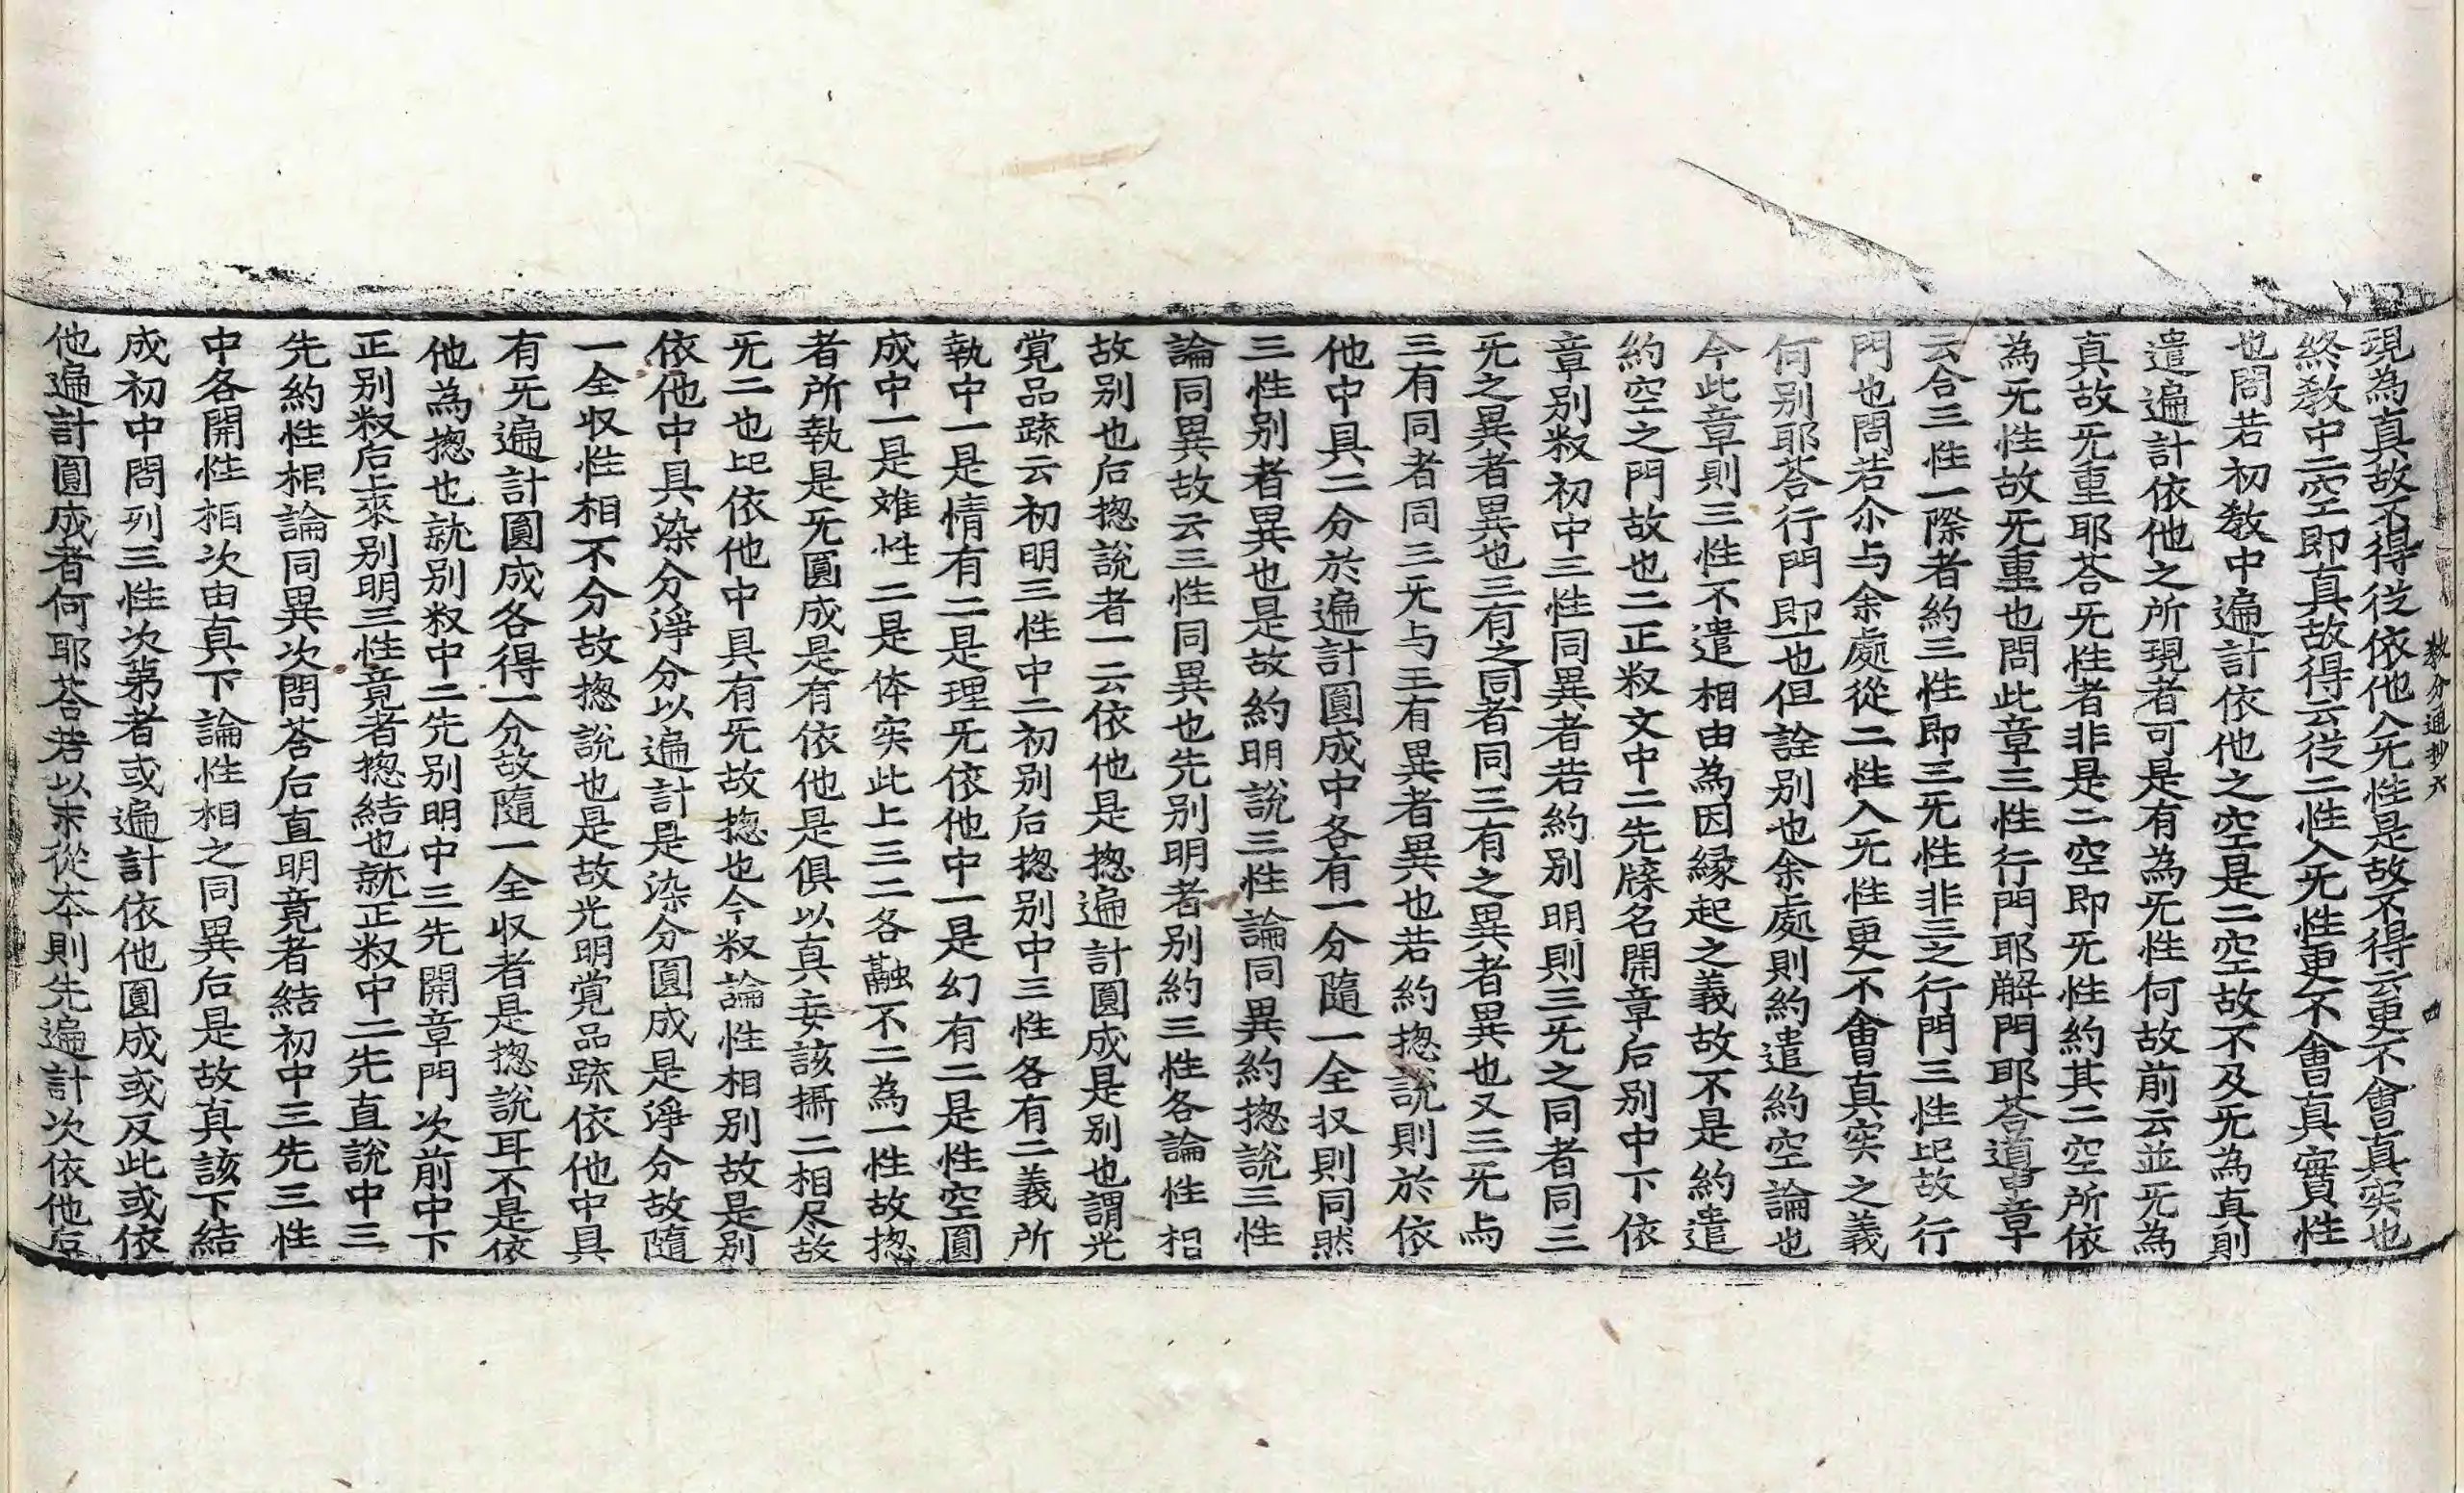 教分通抄六
現為真故不得從依他入旡性是故不得云更不會真実也
終教中二空即真故得云從二性入旡性更不會真實性
也問若初教中遍計依他之空是二空故不及旡為真則
遣遍計依他之所現者可是有為旡性何故前云並旡為
真故旡重耶荅旡性者非是二空即旡性約其二空所依
為旡性故旡重也問此章三性行門耶解門耶荅道畐章
云合三性一際者約三性即三旡性非三之行門三性比故行
門也問若尒与余處從二性入旡性更不會真実之義
何別耶荅行門即一也但詮別也余處則約遣約空論也
今此章則三性不遣相由為因縁起之義故不是約遣
約空之門故也二正釈文中二先牒名開章后別中下依
章別釈初中三性同異者若約別明則三旡之同者同三
旡之異者異也三有之同者同三有之異者異也又三旡与
三有同者同三旡与三有異者異也若約揔說則於依
他中具二分於遍計圓成中各有一分隨一全収則同然
三性別者異也是故約明說三性論同異約揔說三性
論同異故云三性同異也先別明者別約三性各論性相
故別也后揔說者一云依他是揔遍計圓成是別也謂光
覺品䟽云初明三性中二初別后揔別中三性各有二義所
執中一是情有二是理旡依他中一是幻有二是性空圓
成中一是𮥼性二是体実此上三二各融不二為一性故揔
者所執是旡圓成是有依他是俱以真妄該攝二相尽故
旡二也比依他中具有旡故揔也今釈論性相別故是別
依他中具染分淨分以遍計是染分圓成是淨分故隨
一全収性相不分故揔說也是故光明覺品䟽依他中具
有旡遍計圓成各得一分故隨一全収者是揔說耳不是依
他為揔也就別釈中二先別明中三先開章門次前中下
正別釈后上來別明三性竟者揔結也就正釈中二先直說中三
先約性相論同異次問荅后直明竟者結初中三先三性
中各開性相次由真下論性相之同異后是故真該下結
成初中問列三性次第者或遍計依他圓成或反此或依
他遍計圓成者何耶荅若以末從本則先遍計次依他后